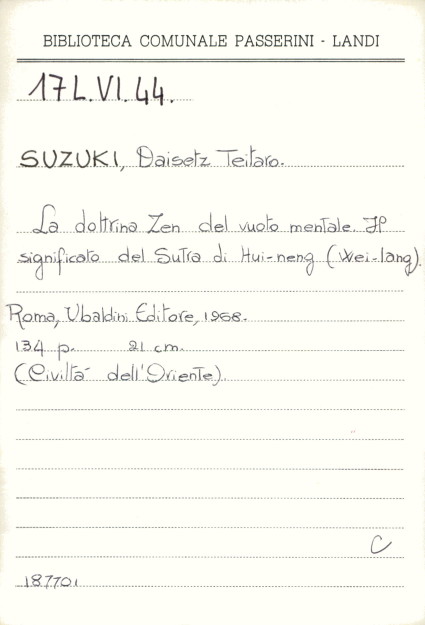 BIBLIOTECA COMUNALE PASSERINI - LANDI
17L.VI.44.
SUZUKI, Daisetz Teitaro.
La dottrina Zen del vuoto mentale. Il
significato del Sutra di Hui-neng (Wei-lang).
Roma, Ubaldini Editore, 1968.
134 p. 21 cm.
(Civiltà dell'Oriente).
C
187701